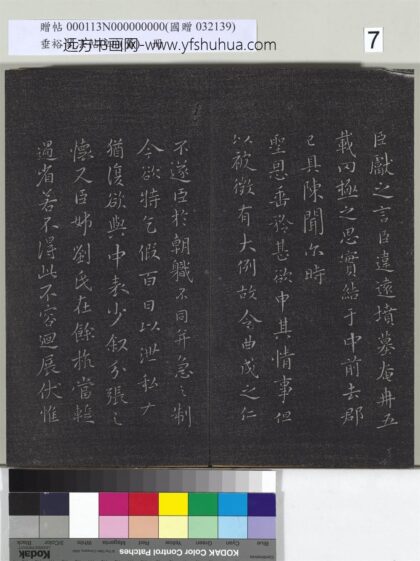 贈帖 000113N000000000(國贈 032139)
垂裕
远方书画网-www.yfshuhua.com
7
臣獻之言臣違遠墳墓奄冉五
載罔極之思實結于中前去郡
已具陳聞尔時
聖恩垂矜甚欲申其情事但
以被徵有大例故令曲成之仁
不遂臣於朝職不同并急之制
今欲特乞假百日以泄私
猶復欲與中表少叙分張之
懷又臣姊劉氏在餘杭當輒
過省若不得此不容迴展伏惟
Kodak
KODAK Color Control Patches
Blue Cyan Green Yellow Red Magenta White